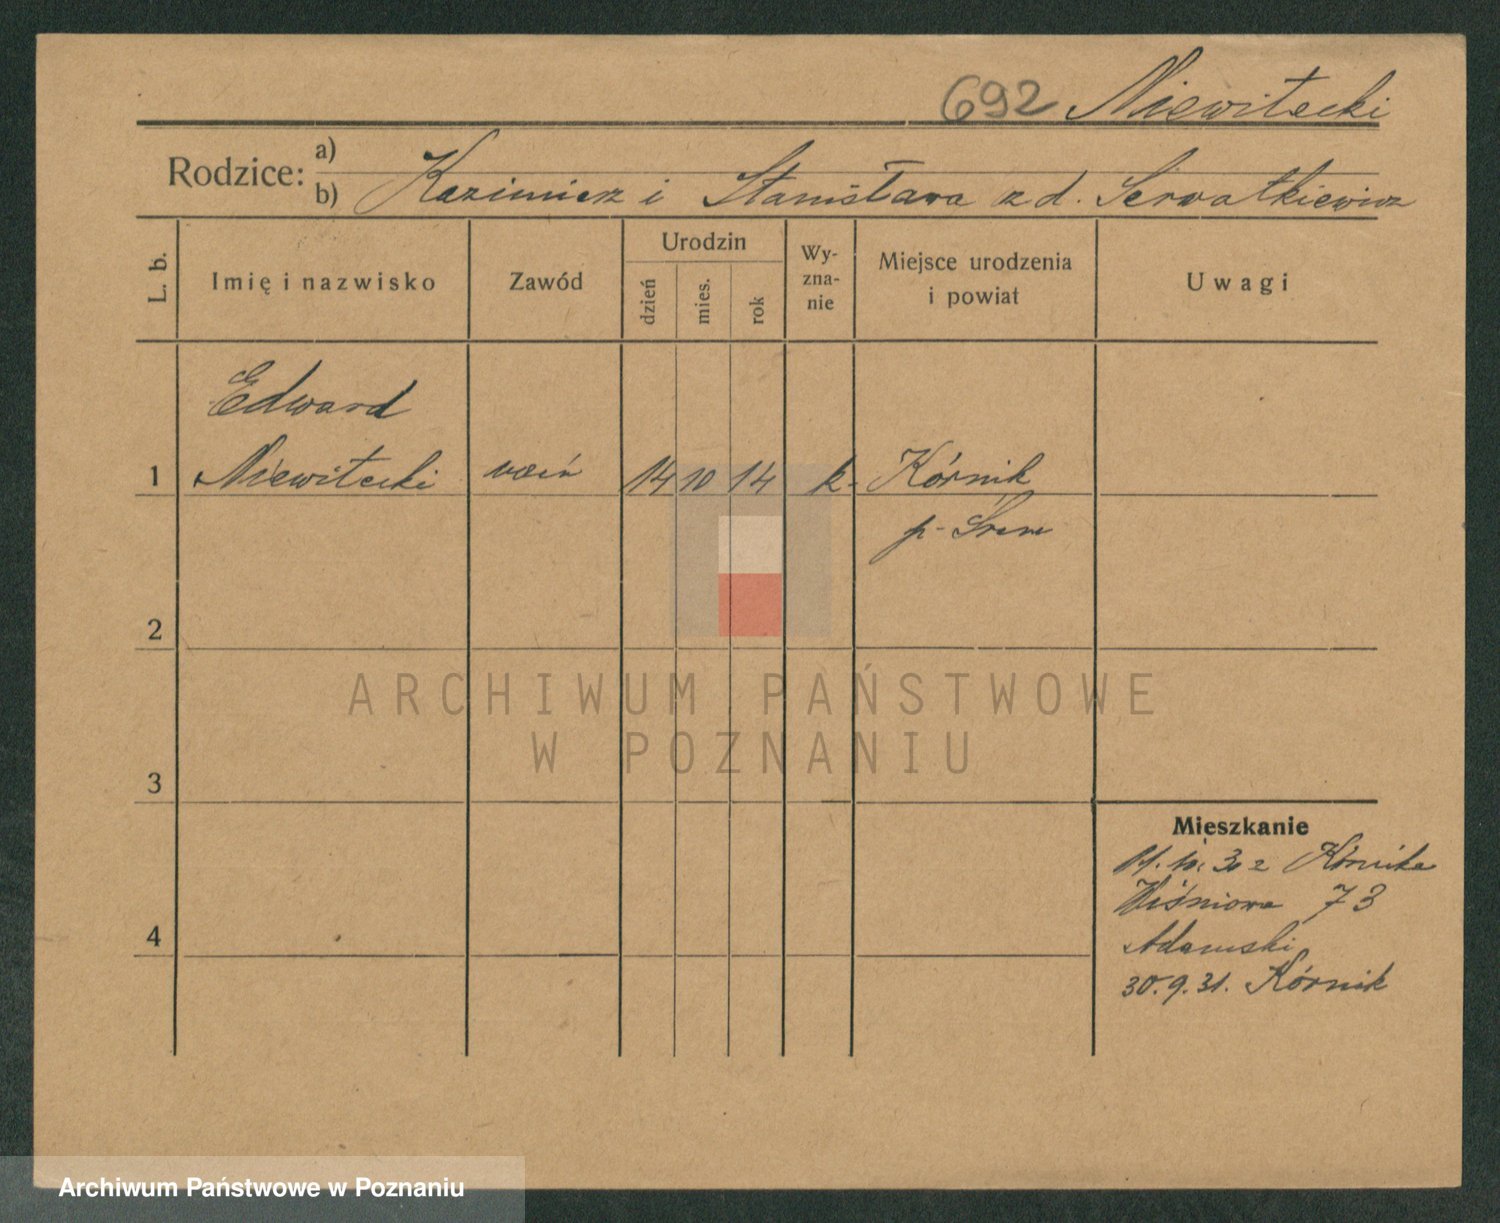 692 Niewitecki
Rodzice: a)
b) Kazimierz i Stanisława z d. Serwatkiewicz
L. b.
Imię i nazwisko
Zawód
Urodzin
dzień
mies.
rok
Wy-
zna-
nie
Miejsce urodzenia
i powiat
Uwagi
Edward
1 Niewitecki uczń 14 10 14 k- Kórnik
p- Śrem
2
ARCHIWUM PAŃSTWOWE
W POZNANIU
3
Mieszkanie
11.10.30 z Kórnika
Wiśniowa 73
Adamski
4
30.9.31. Kórnik
Archiwum Państwowe w Poznaniu